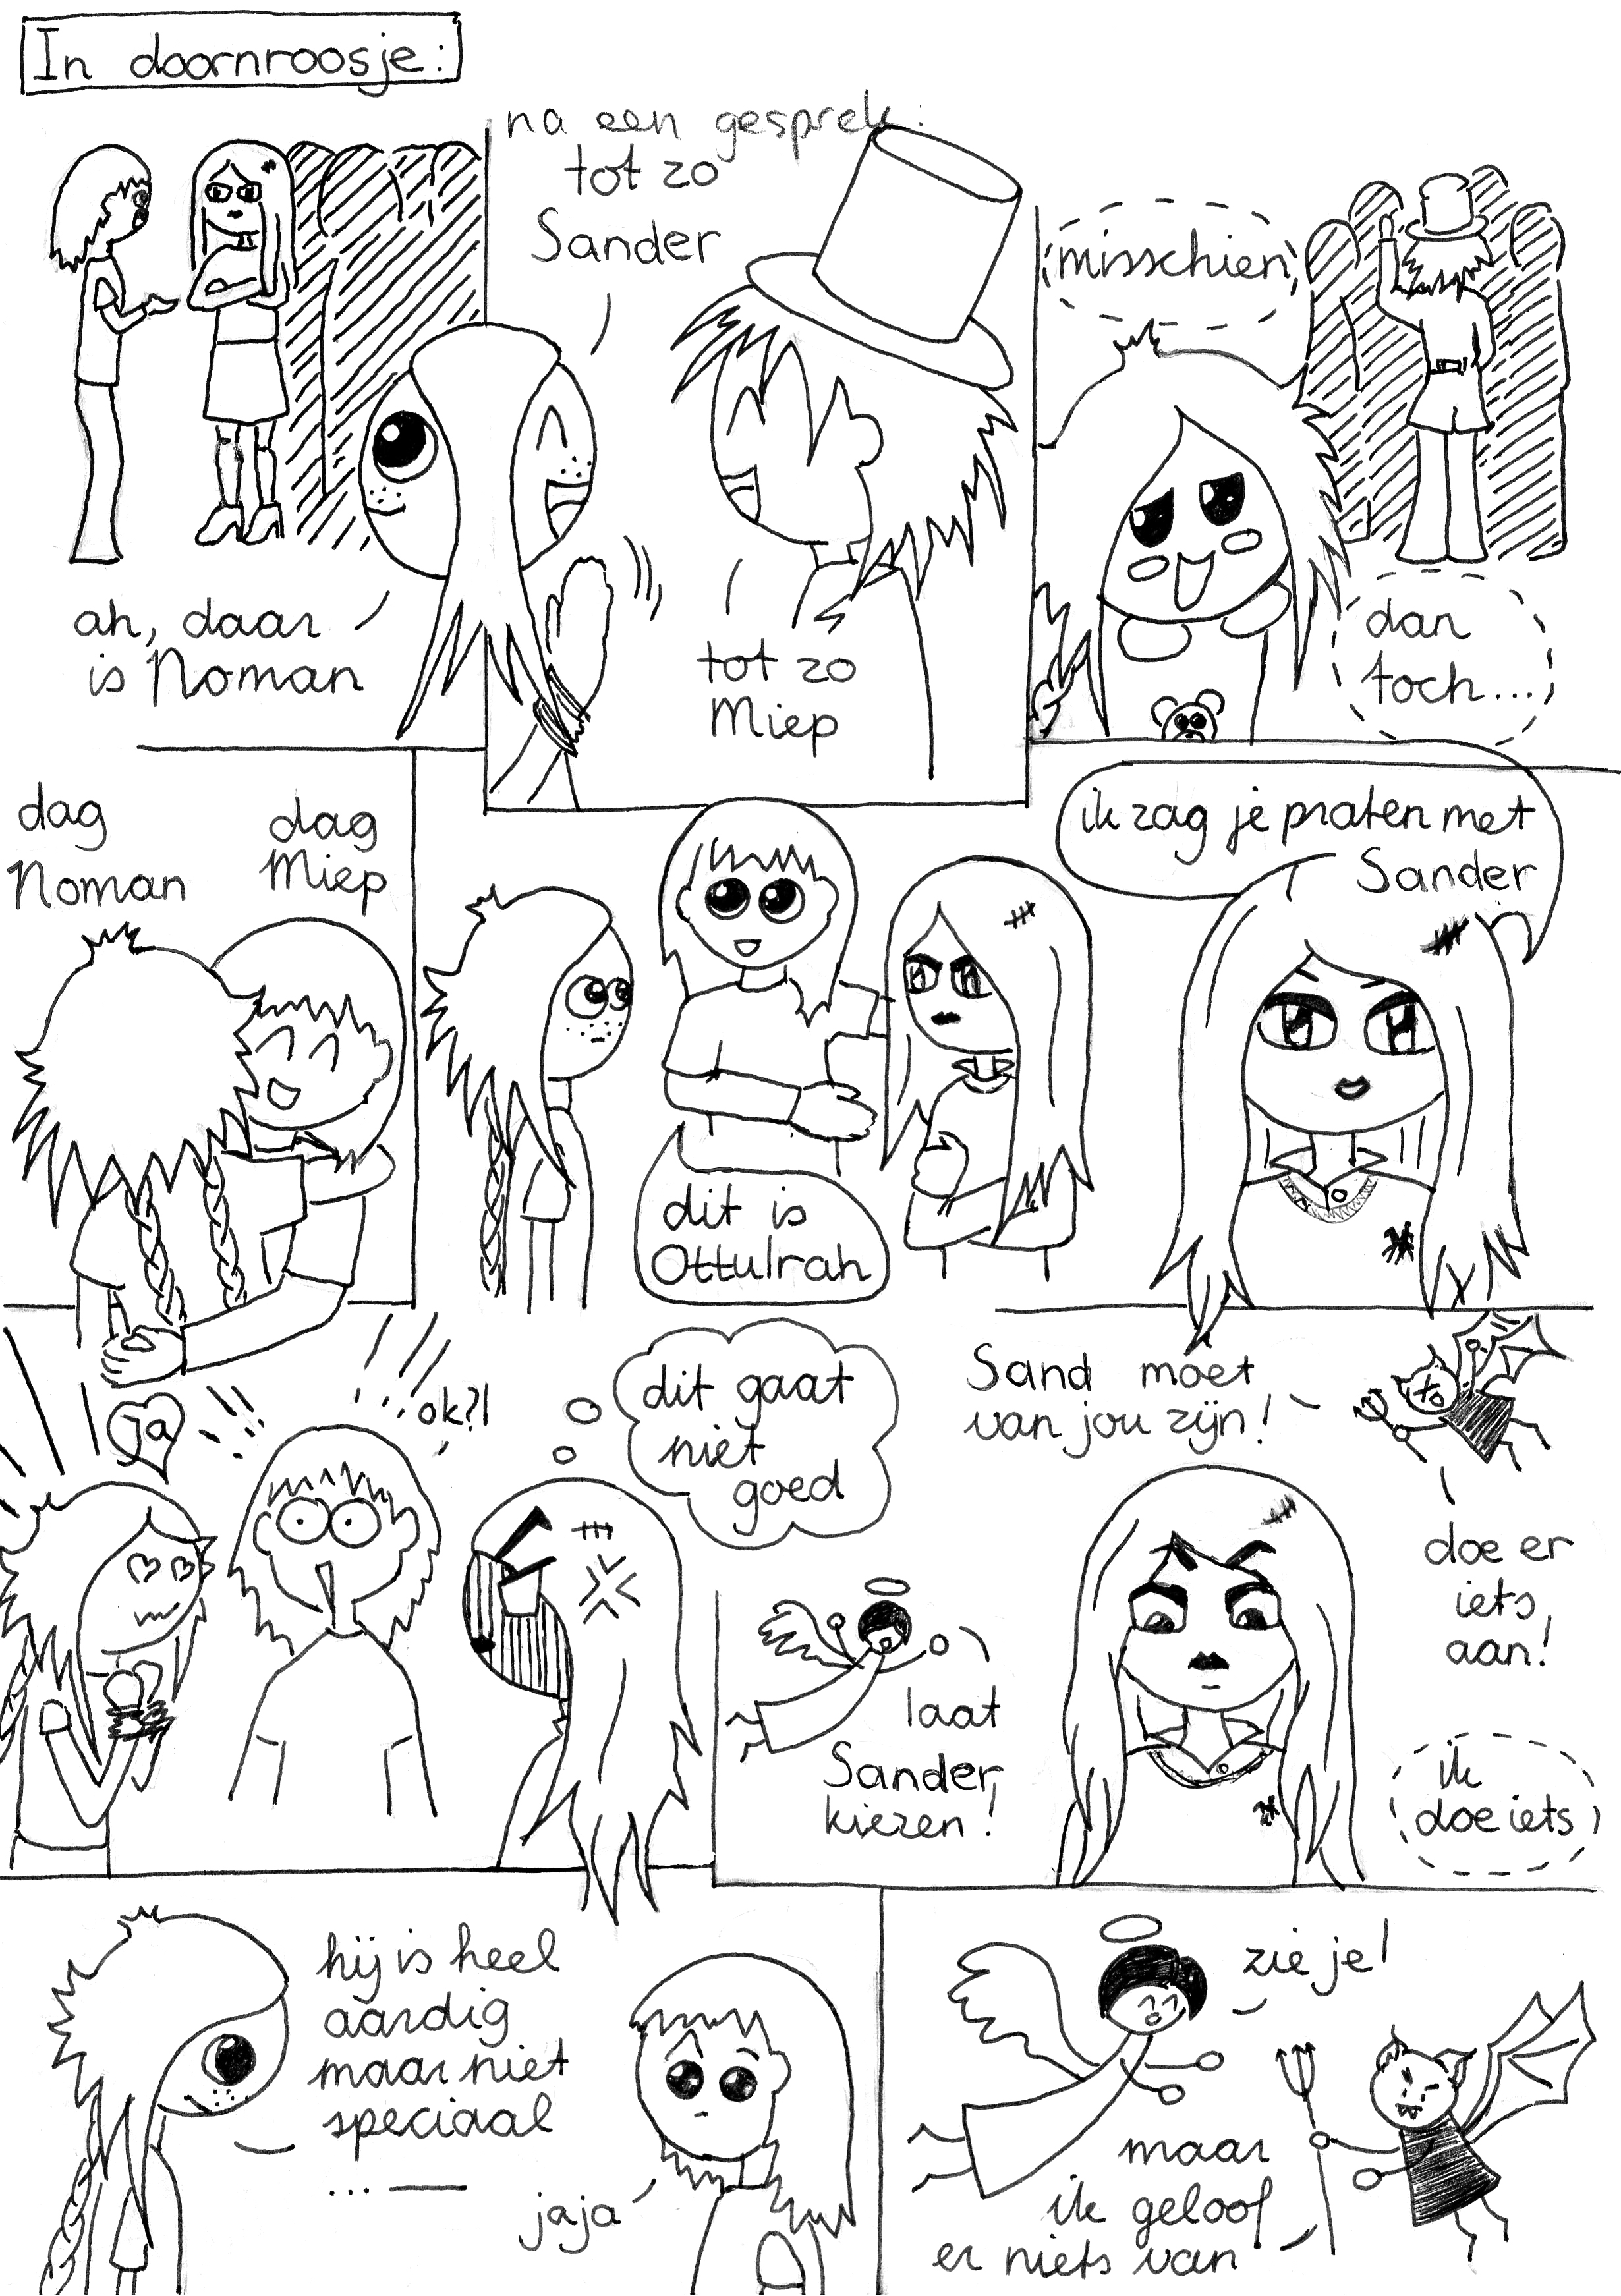 In doornroosje:
na een gesprek:
tot zo
Sander
ah, daar
is Noman
tot zo
Miep
misschien
dan
toch...
dag
Noman
dag
Miep
dit is
Ottulrah
ik zag je praten met
Sander
ja
ok?!
dit gaat
niet
goed
Sand moet
van jou zijn!
doe er
iets
aan!
laat
Sander
kiezen!
ik
doe iets
hij is heel
aardig
maar niet
speciaal
... —
jaja
zie je!
maar
ik geloof
er niets van